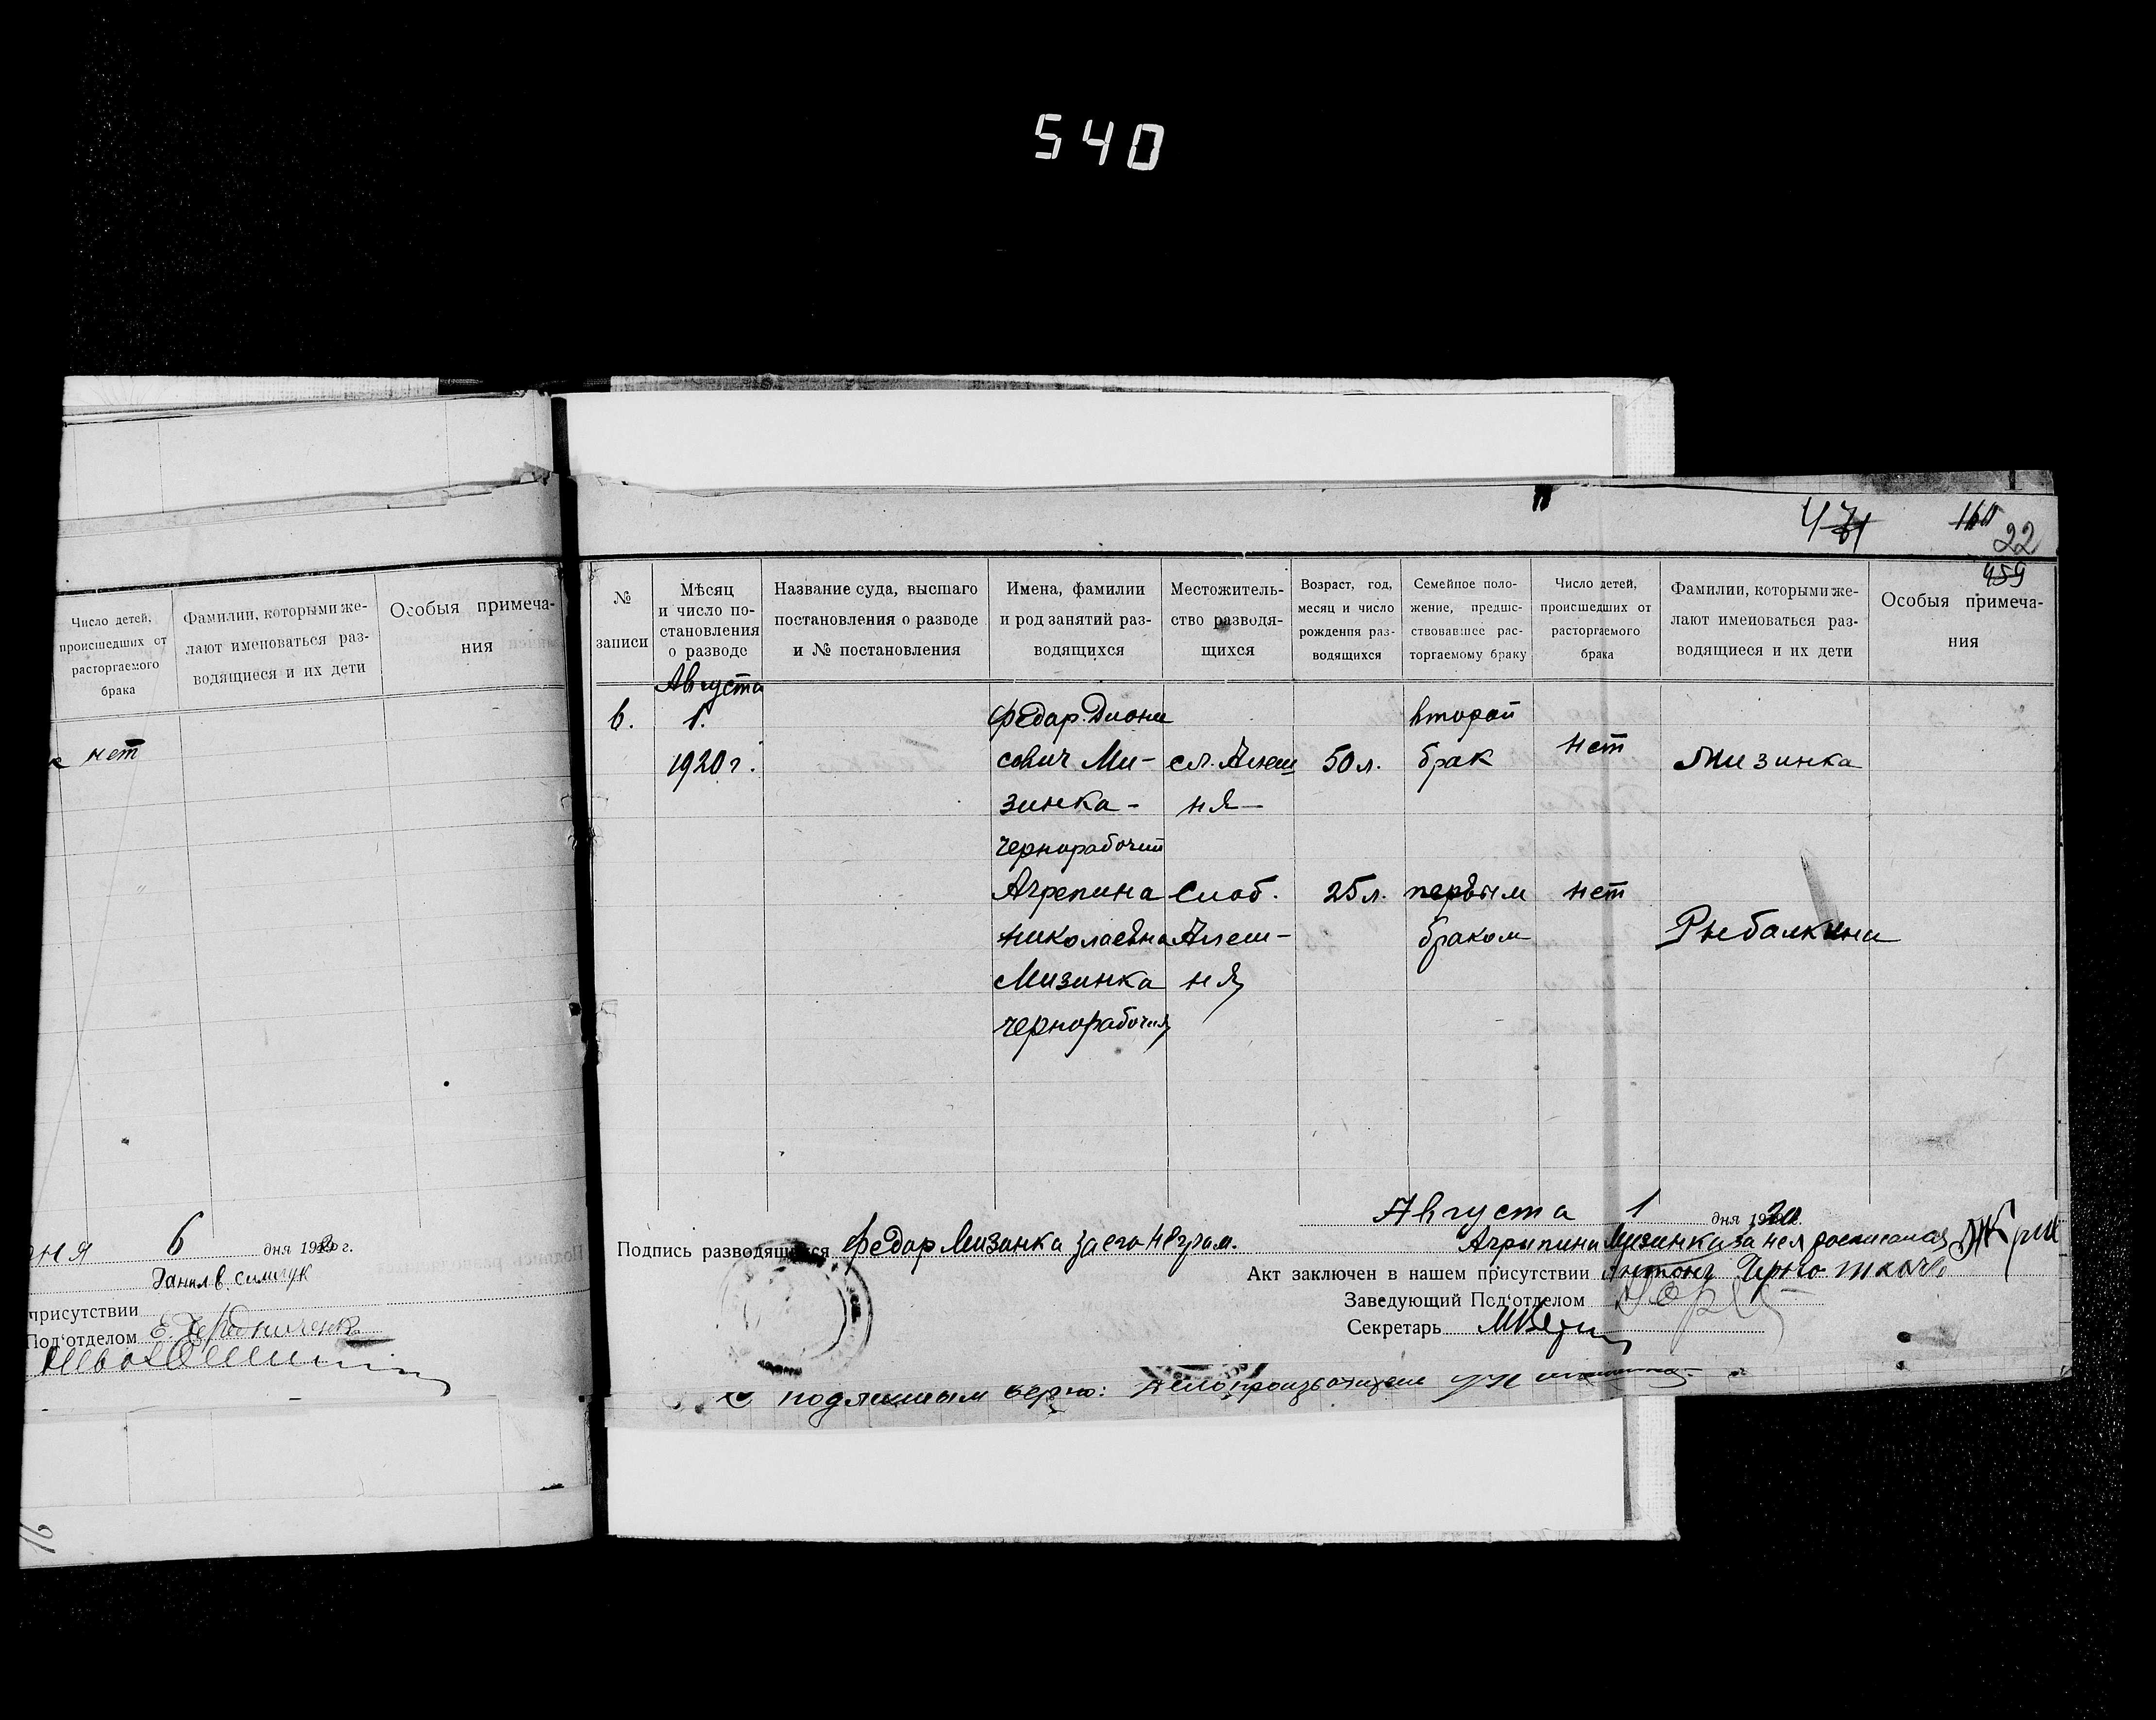 540
471
160
22
459
Число детей, происшедших от расторгаемого брака
Фамилии, которыми желают именоваться разводящиеся и их дети
Особыя примечания
нет
6 дня 192 г.
присутствии
Под'отделом
№ записи
Мѣсяц и число постановления о разводе
Название суда, высшаго постановления о разводе и № постановления
Имена, фамилии и род занятий разводящихся
Местожительство разводящихся
Возраст, год, месяц и число рождения разводящихся
Семейное положение, предшествовавшее расторгаемому браку
Число детей, происшедших от расторгаемого брака
Фамилии, которыми желают именоваться разводящиеся и их дети
Особыя примечания
Августа
6. 1. Федар Диони второй
1920 г. сович Ми- сл. Алеш 50 л. брак нет Мизинка
зинка - ня
чернорабочий
Агрепина Слоб. 25 л. первым нет
Николаевна Алеш- браком Рыбалкина
Мизинка ня
чернорабочия
Августа 1 дня 1920
Подпись разводящихся Федар Мизинка за его неграм.
Агрипина Мизинка за нея
Акт заключен в нашем присутствии Антонъ
Заведующий Под'отделом
Секретарь
С подлинным верно: Делопроизводитель